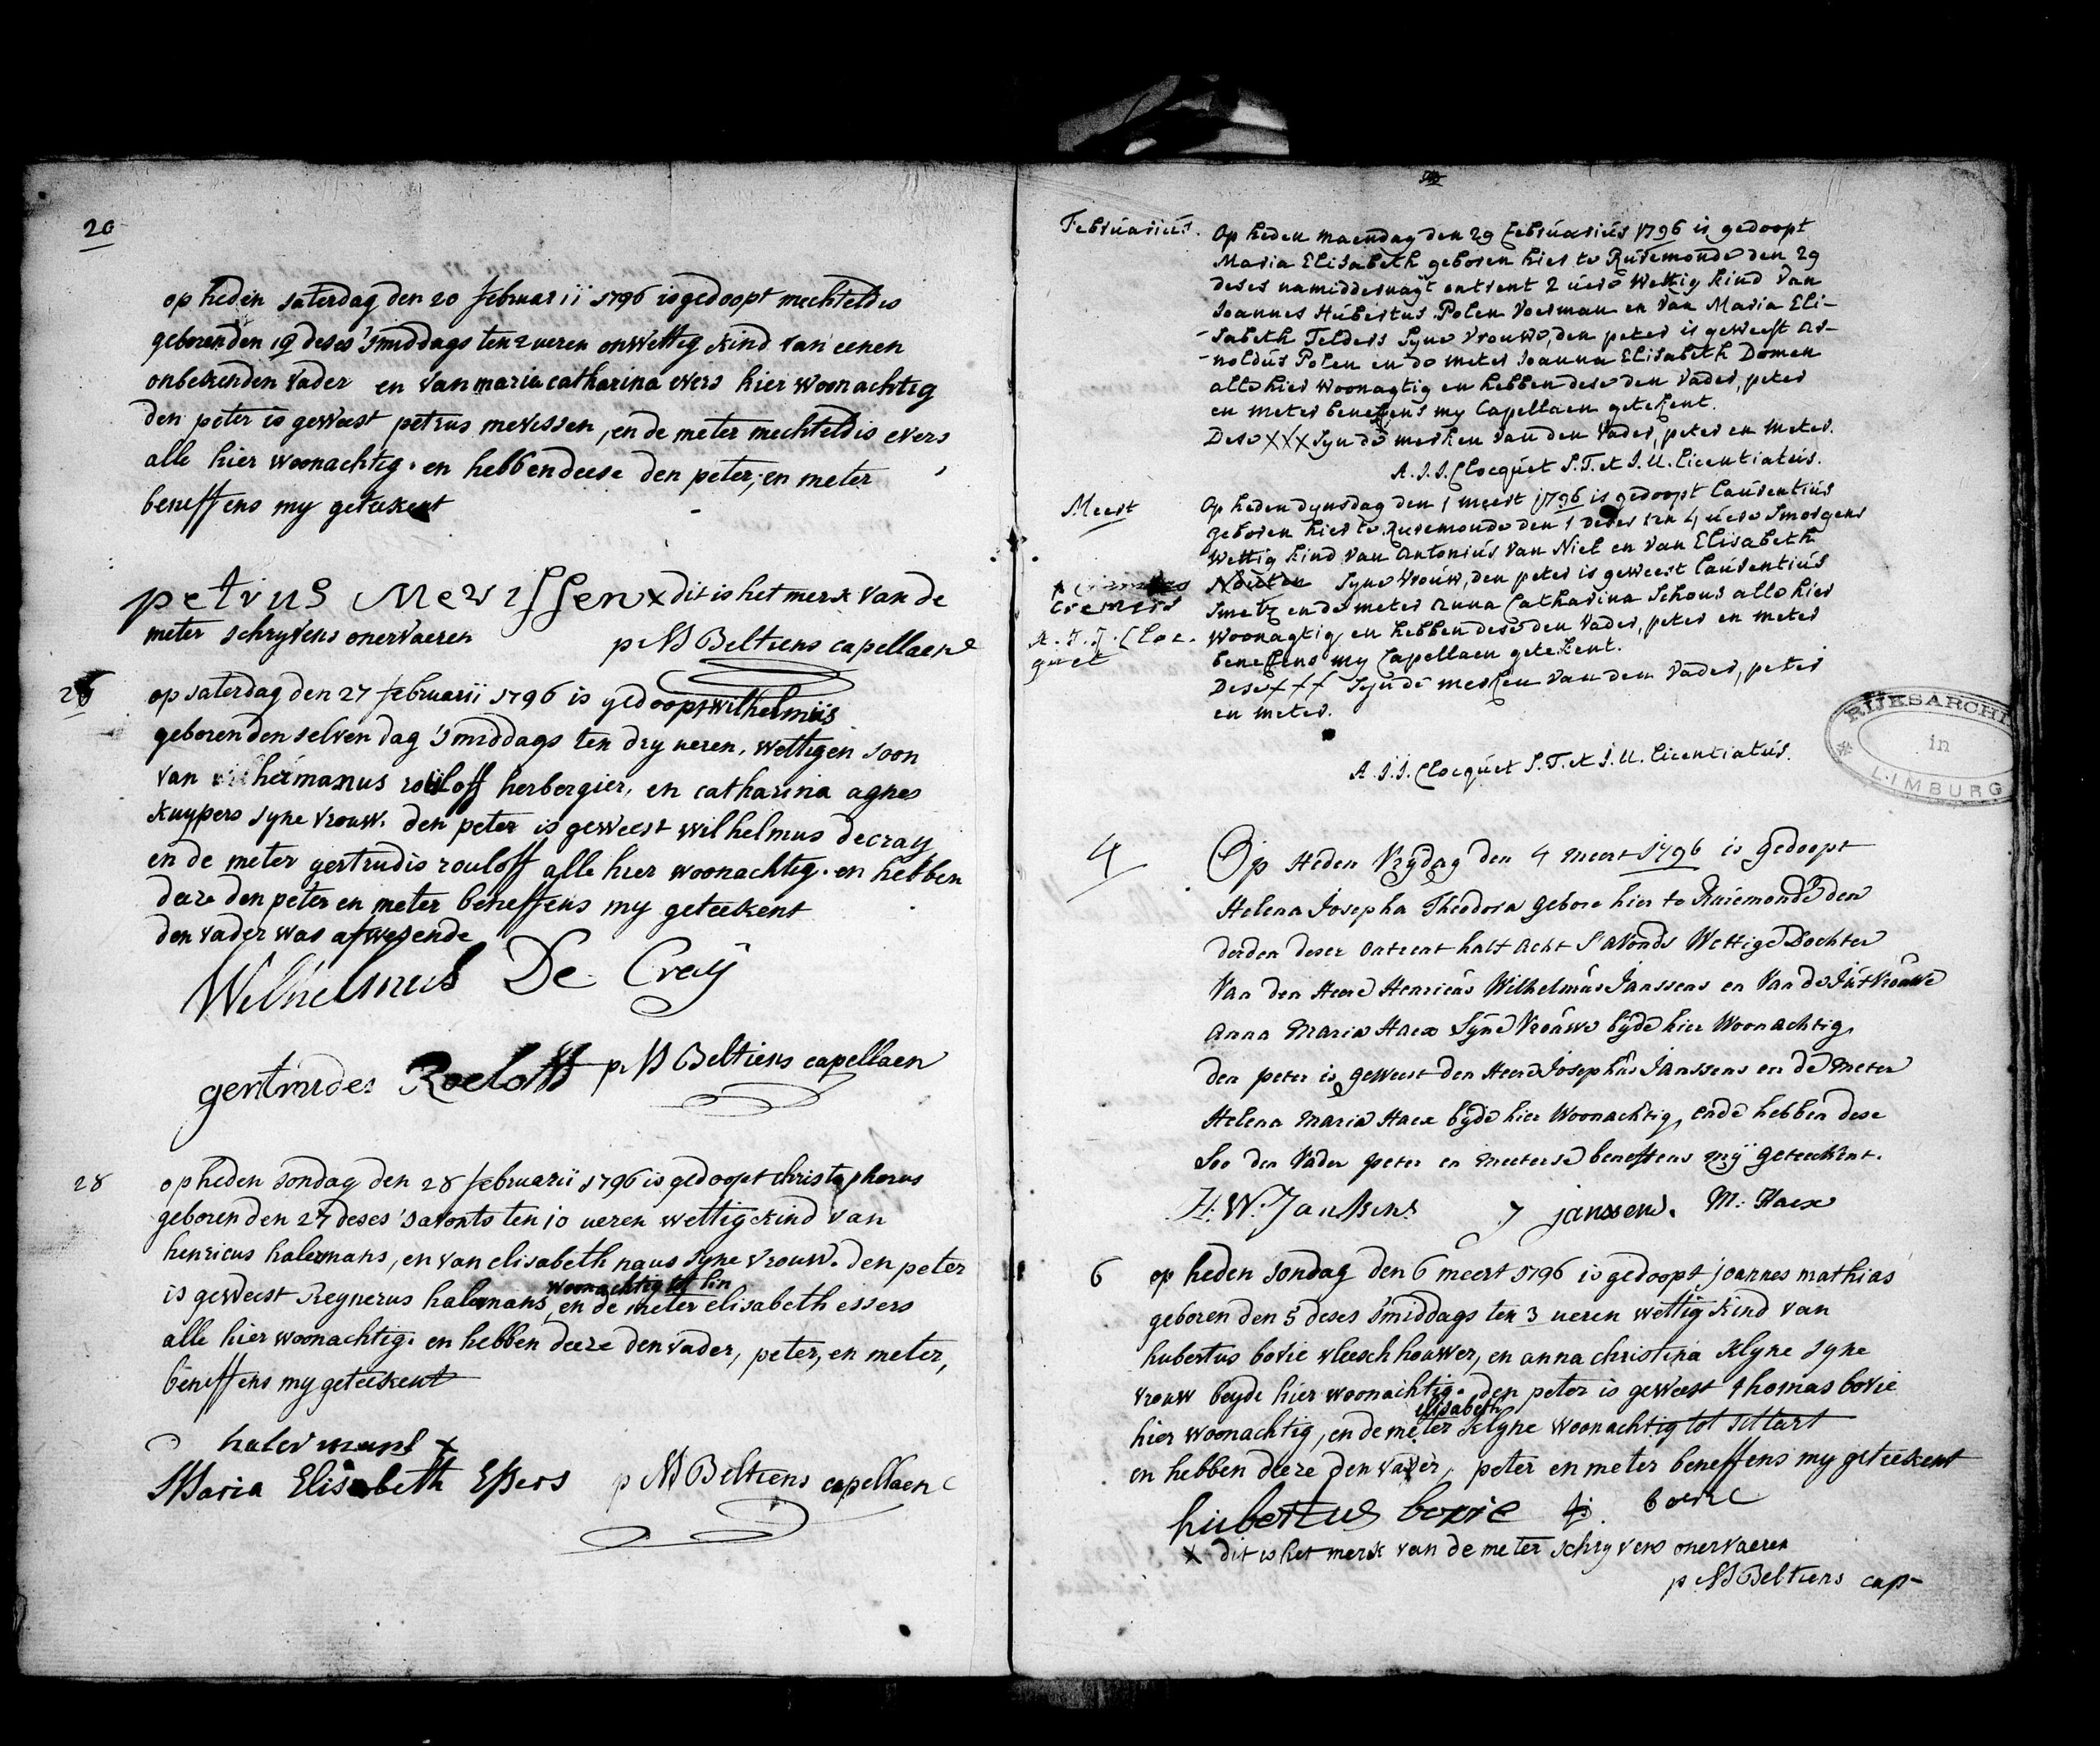 20
op heden saterdag den 20 februarii 1796 is gedoopt mechteldis
geboren den 19 deses 'smiddags ten 2 ueren onwettig kind van eenen
onbekenden vader en van maria catharina evers hier woonachtig
den peter is geweest petrus mevissen, en de meter mechteldis evers
alle hier woonachtig. en hebben deese den peter, en meter
beneffens my geteekent
petrus Mevissen x dit is het merk van de
meter schryvens onervaeren p M Beltiens capellaen
op saterdag den 27 februarii 1796 is gedoopt wilhelmus
geboren den selven dag 'smiddags ten dry ueren. wettigen soon
van hermanus rouloff herbergier, en catharina agnes
kuypers syne vrouw. den peter is geweest wilhelmus decray
en de meter gertrudis rouloff alle hier woonachtig. en hebben
deeze den peter en meter beneffens my geteekent
den vader was afwesende
Wilhelmus De Craÿ
gertrudes Roeloffs p M Beltiens capellaen
28
op heden sondag den 28 februarii 1796 is gedoopt christophorus
geboren den 27 deses 'savonts ten 10 ueren wettig kind van
henricus halermans, en van elisabeth naus syne vrouw. den peter
woonachtig tot lin
is geweest Reynerus halemans, en de meter elisabeth essers
alle hier woonachtig. en hebben deeze den vader, peter, en meter,
beneffens my geteekent
halermans x
Maria Elisabeth Essers p M Beltiens capellaen
Februarius.
Op heden maendag den 29 februarius 1796 is gedoopt
Maria Elisabeth geboren hier te Ruremonde den 29
deses namiddernagt ontrent 2 uere Wettig kind van
Joannes Hubertus Polen Voerman en van Maria Eli-
-sabeth Telders syne vrouwe, den peter is geweest Ar-
-noldus Polen en de meter Joanna Elisabeth Domen
alle hier woonagtig en hebben dese den vader, peter
en meter beneffens my Capellaen getekent.
Dese XXX syn de merken van den vader, peter en meter.
A.J.J. Clocquet S.T. et J.U. Licentiatus.
Meert
Op heden dynsdag den 1 meert 1796 is gedoopt Laurentius
geboren hier te Ruremonde den 1 deses ten 4 uere smorgens
Wettig kind van Antonius van Niel en van Elisabeth
Nouten syne vrouw, den peter is geweest Laurentius
cremers
A.J.J. Cloc-
quet
Smetz en de meter Anna Catharina Schous alle hier
woonagtig, en hebben dese den vader, peter en meter
beneffens my Capellaen getekent.
Dese XXX syn de merken van den vader, peter
en meter.
A.J.J. Clocquet S.T. et J.U. Licentiatus.
RIJKSARCHI
in
LIMBURG
4
Op Heden Vrÿdag den 4 meert 1796 is gedoopt
Helena Josepha Theodora gebore hier te Ruremonde den
derden deser ontrent half acht s'avonds Wettige Dochter
Van den Heere Henricus Wilhelmus Janssens en Van de Jufvrouwe
Anna Maria Haex Syne Vrouwe bÿde hier Woonachtig,
den peter is geweest den Heere Josephus Janssens en de meter
Helena Maria Haex bÿde hier Woonachtig, ende hebben dese
Soo den Vader peter en meeterse beneffens mÿ geteeckent.
H. W. Janssens J janssens. M: Haex
6
op heden sondag den 6 meert 1796 is gedoopt joannes mathias
geboren den 5 deses smiddags ten 3 ueren wettig kind van
hubertus bovie vleeschhouwer, en anna christina klyne syne
vrouw beyde hier woonachtig. den peter is geweest thomas bovie
elisabeth
hier woonachtig, en de meter klyne woonachtig tot sittart
en hebben deeze den vader, peter en meter beneffens my geteekent
hubertus bovie bovie
x dit is het merk van de meter schryvens onervaeren
p M Beltiens cap-